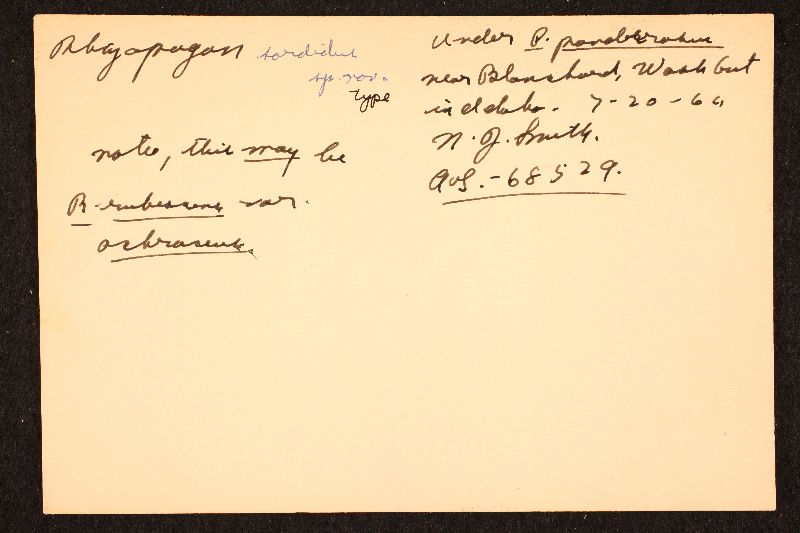 Rhizopogon sordidus
sp. nov.
Type
note, this may be
R. rubescens var.
ochraceus
Under P. ponderosa
near Blanchard, Wash but
in Idaho. 7-20-64
N. J. Smith.
AHS.-68529.